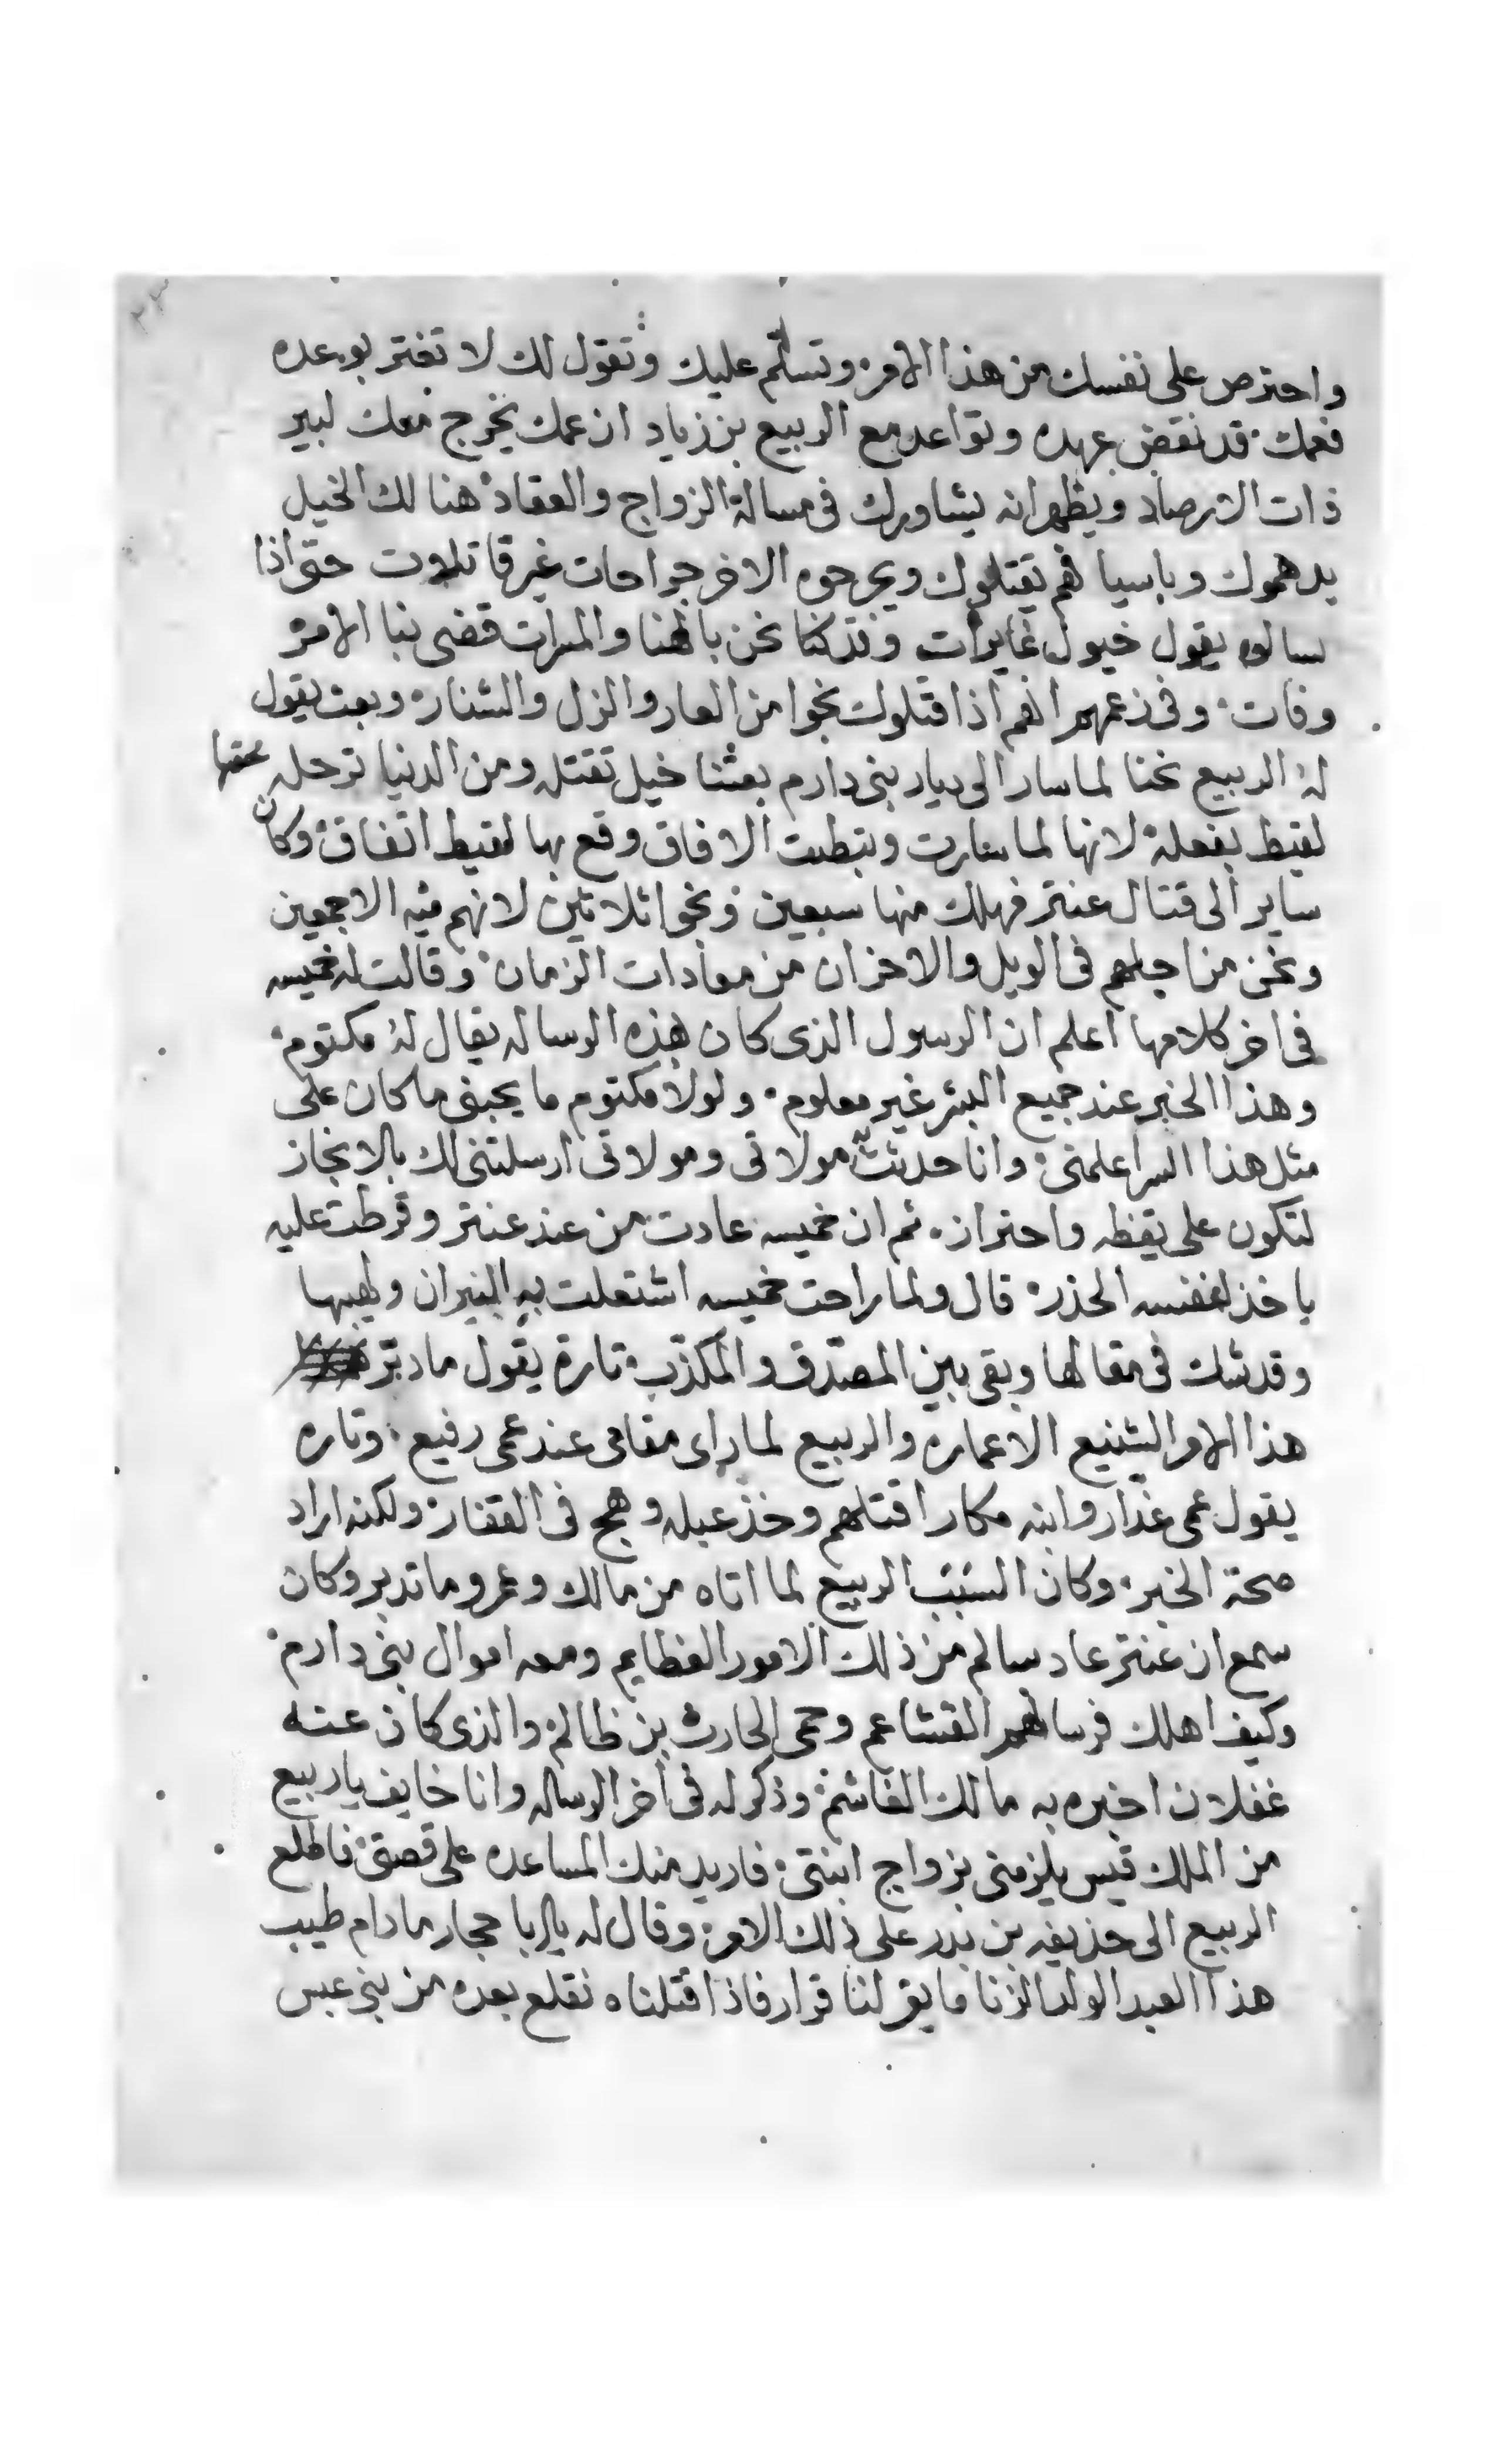 ٣٣
واحترص على نفسك من هذا الامر وتسلم عليك وتقول لك لا تغتر بوعده
فعمك قد نقض عهده وتواعد مع الربيع بن زياد ان عمك يخرج معك لبير
ذات الارصاد ويظهر انه يشاورك فى مسالة الزواج والعقاد هنالك الخيل
يدهموك وباسيافهم يقتلوك ويجرحوه الاخر جراحات غير قاتلات حتى اذا
سالوه يقول خيول غايرات وقد كنا نحن بالهنا والمسرات قضى بنا الامر
وفات وفى زعمهم انهم اذا قتلوك نجوا من العار والزل والشنار وبعث يقول
له الربيع نحنا لما سار الى ديار بنى دارم بعثنا خيل تقتله ومن الدنيا ترحله محقها
لقيط بفعله لانها لما سارت وبطت الافاق وقع بها لقيط اتفاق وكان
ساير الى قتال عنتر فهلك منها سبعين ونجوا ثلاثين لانهم ميه الاجمعين
ونحن من اجلهم فى الويل والاحزان من معادات الزمان وقالت له خميسه
فى اخر كلامها اعلم ان الرسول الذى كان بهذه الرساله يقال له مكتوم
وهذا الخبر عند جميع البشر غير معلوم ولولا مكتوم ما يحبنى ما كان على
مثل هذا السر اعلمنى وانا حديث مولاتى ومولاتى ارسلتنى لك بالانجاز
لتكون على يقظه واحتراز ثم ان خميسه عادت من عند عنتر وقرطت عليه
ياخذ لنفسه الحذر قال ولما راحت خميسه اشتعلت به النيران ولهيبها
وقد شك فى مقالها وبقى بين المصدق والمكذب تارة يقول ما دبر
هذا الامر الشنيع الا عماره والربيع لما راى مقامى عند عمى رفيع وتاره
يقول عمى غدار وابنه مكار اقتلهم وخذ عبله وهج فى القفار ولكنه اراد
صحة الخبر وكان السبب الربيع لما اتاه من مالك وعمرو ما تدبر وكان
سمع ان عنتر عاد سالم من ذلك الامور العظايم ومعه اموال بنى دارم
وكيف اهلك فرسانهم القشاعم وحمى الحارث بن ظالم والذى كان عنه
غفلان اخبره به مالك الغاشم وذكر له فى اخر الرساله وانا خايف يا ربيع
من الملك قيس يلزمنى بزواج ابنتى فاريد منك المساعده على قصتى فاطلع
الربيع الى حذيفه بن بدر على ذلك الامر وقال له يا ابا حجار ما دام طيب
هذا العبد الولد الزنا ما يقر لنا قرار فاذا قتلناه نقلع بعده من بنى عبس